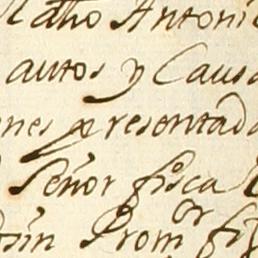 Matho Antoni
autos y Causa
nes presentada
Señor fisca
or
tsin Prom fi